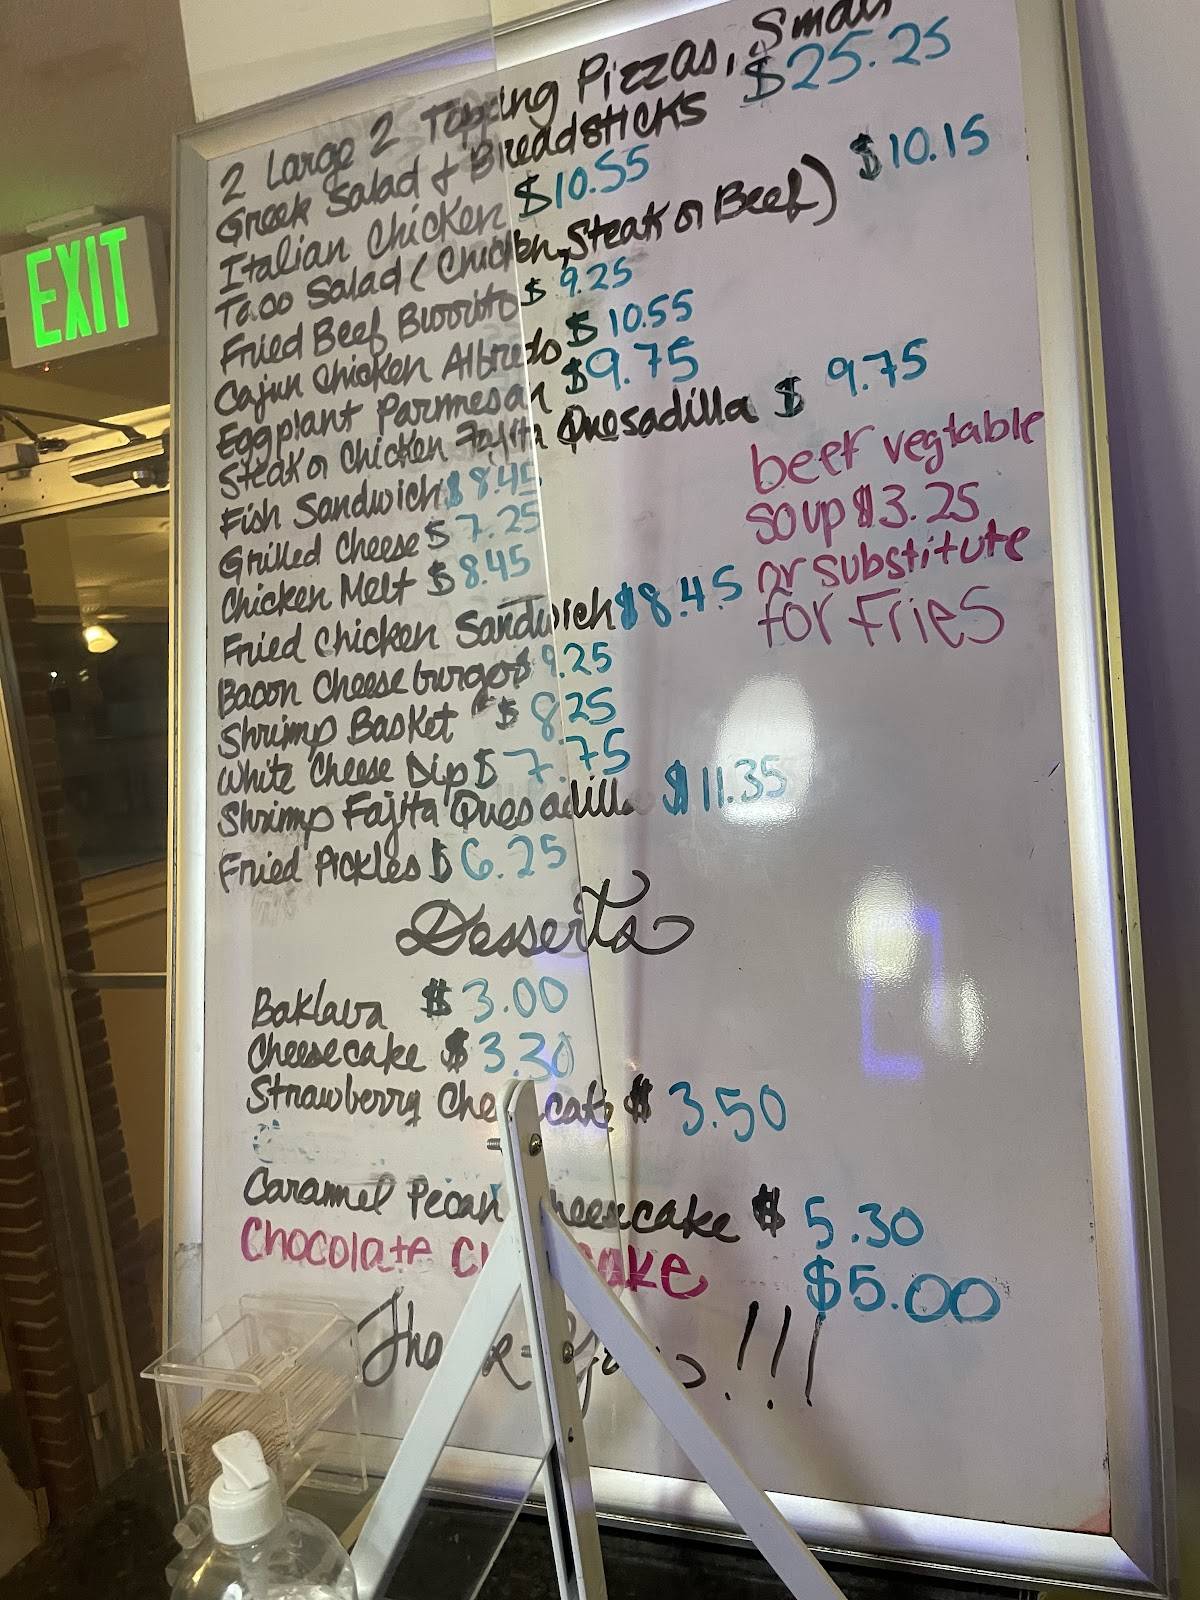 EXIT
2 Large 2 Topping Pizzas, Small
Greek Salad & Breadsticks $25.25
Italian Chicken $10.55
Taco Salad (Chicken, Steak or Beef) $10.15
Fried Beef Burrito $9.25
Cajun Chicken Alfredo $10.55
Eggplant Parmesan $9.75
Steak or Chicken Fajita Quesadilla $9.75
Fish Sandwich $8.45
Grilled Cheese $7.25
Chicken Melt $8.45
Fried Chicken Sandwich $8.45
Bacon Cheeseburger $9.25
Shrimp Basket $8.25
White Cheese Dip $7.75
Shrimp Fajita Quesadilla $11.35
Fried Pickles $6.25
beef vegtable
soup $3.25
or substitute
for Fries
Desserts
Baklava $3.00
Cheesecake $3.30
Strawberry Cheesecake $3.50
Caramel Pecan Cheesecake $5.30
Chocolate cake $5.00
Thank You!!!